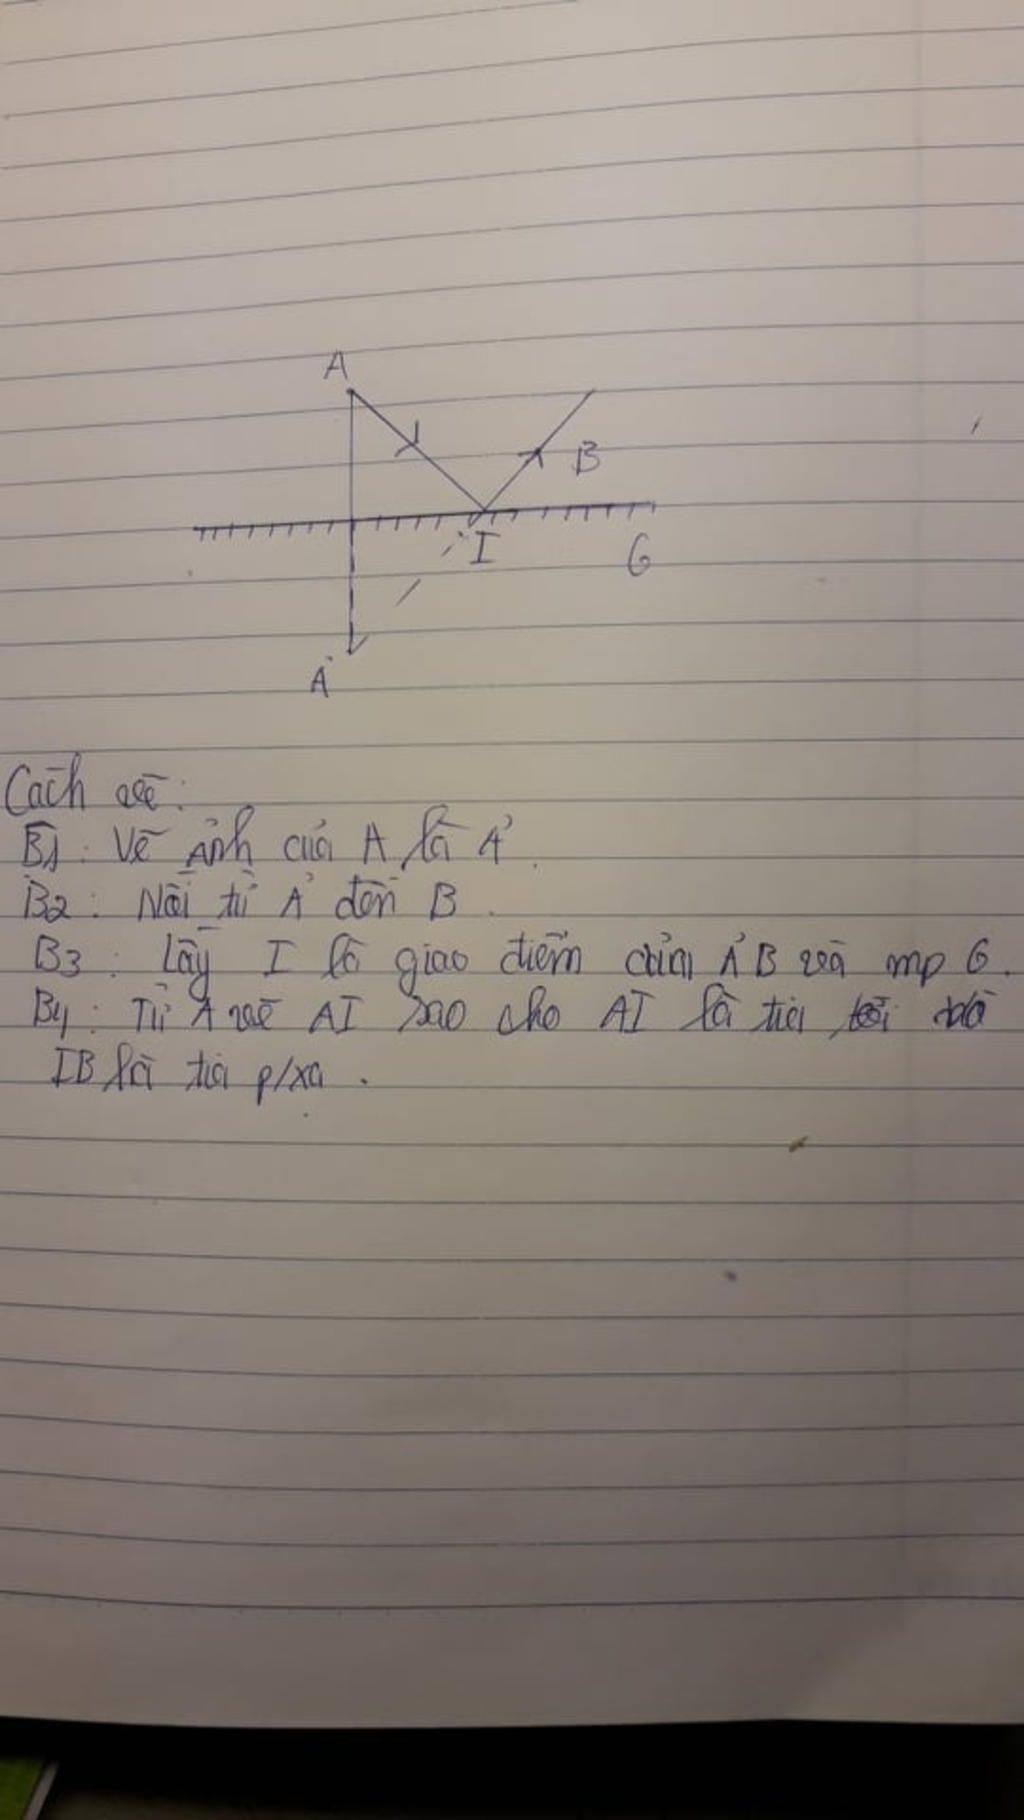 A
B
I
G
A'
Cách vẽ:
B1: Vẽ ảnh của A là A'.
B2: Nối từ A' đến B.
B3: Lấy I là giao điểm của A'B và mp G.
B4: Từ A vẽ AI sao cho AI là tia tới và
IB là tia p/xạ.